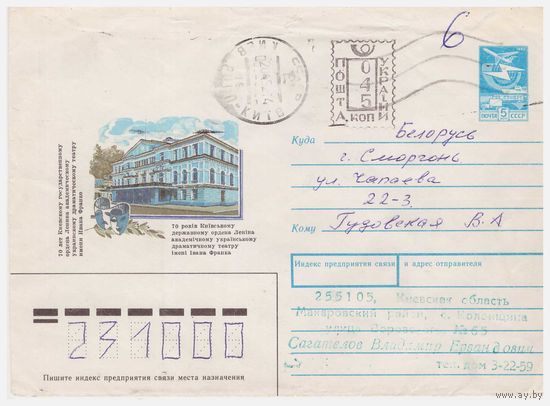 6
ПОШТА
УКРАЇНИ
045
КОП
ПОЧТА 5 СССР
Куда Беларусь
г. Сморгонь
ул. Чапаева
22-3,
Кому Гудовская В. А
70 лет Киевскому государственному
ордена Ленина академическому
украинскому драматическому театру
имени Ивана Франко
70 років Київському
державному ордена Леніна
академічному українському
драматичному театру
імені Івана Франка
Индекс предприятия связи и адрес отправителя
255105, Киевская область
Макаровский район, с. Колонщина
улица №65
Сагателов Владимир Ервандович
тел. дом 3-22-59
231000
Пишите индекс предприятия связи места назначения
www.ay.by